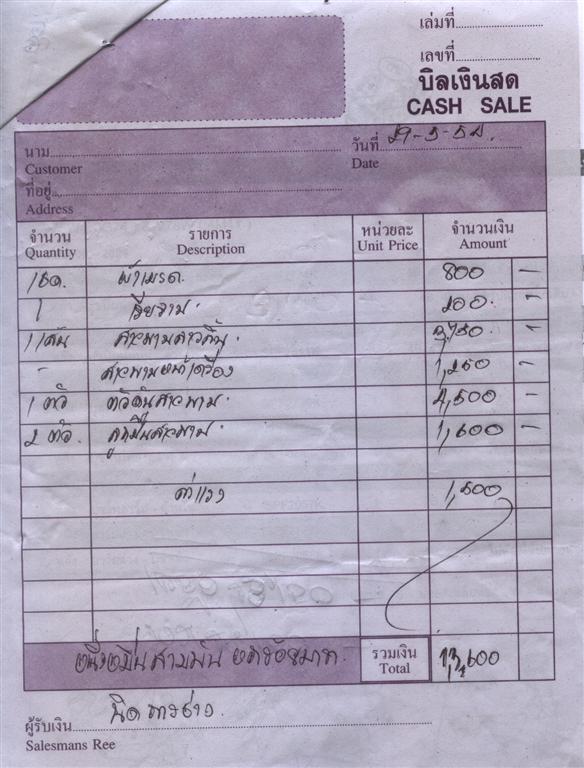 เล่มที่
เลขที่
บิลเงินสด
CASH SALE
นาม
Customer
วันที่ 29-5-52.
Date
ที่อยู่
Address
จำนวน รายการ หน่วยละ จำนวนเงิน
Quantity Description Unit Price Amount
1 ชุด. ผ้าเบรค. 800 -
1 200. -
1 เส้น สายพาน 3,750 -
- สายพานหน้าเครื่อง 1,250 -
1 ตัว ตัวดันสายพาน. 4,500 -
2 ตัว. ลูกปืนสายพาน. 1,600 -
ค่าแรง 1,500
หนึ่งหมื่นสามพันหกร้อยบาท. รวมเงิน 13,600
Total
ผู้รับเงิน นิด การช่าง
Salesmans Ree